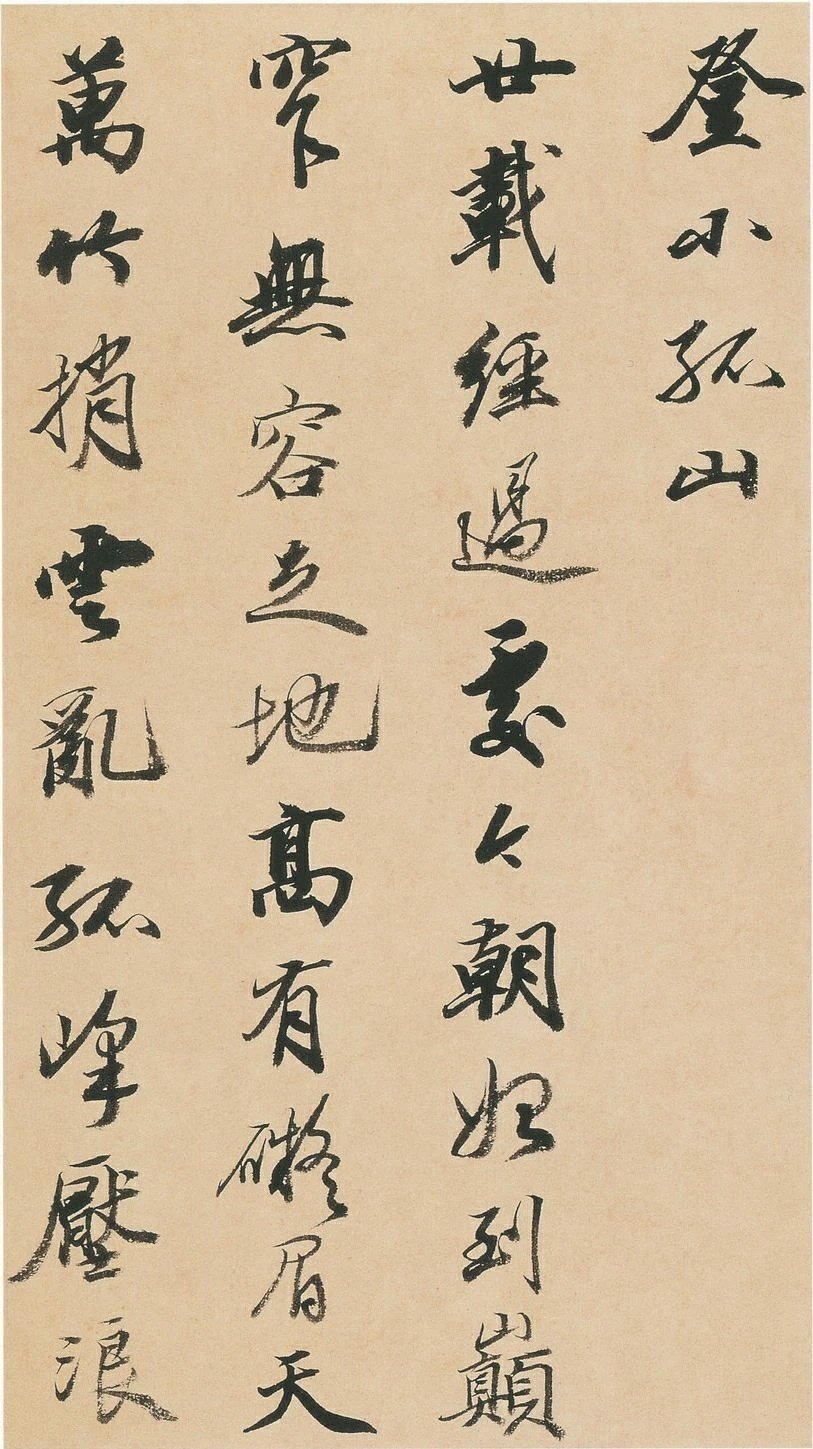 登小孤山
廿載經過處今朝始到巔
窄無容足地高有礙眉天
萬竹捎雲亂孤峰壓浪